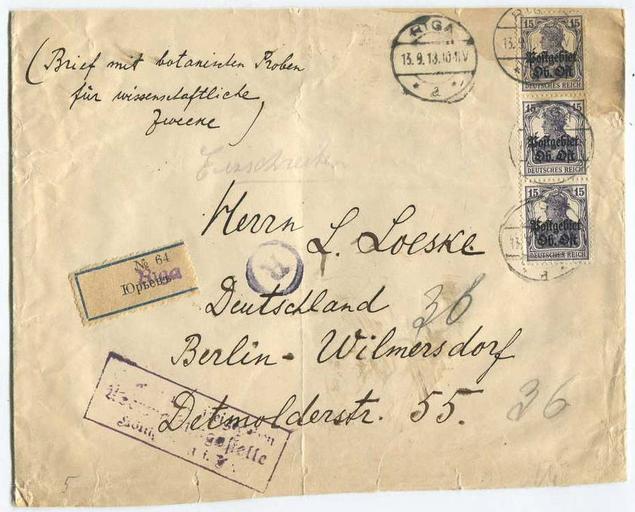 (Brief mit botanischen Proben
für wissenschaftliche
Zwecke)
RIGA
13.9.18.10-11V
a
15 15
Postgebiet
Ob. Ost
DEUTSCHES REICH
15 15
Postgebiet
Ob. Ost
DEUTSCHES REICH
15 15
Postgebiet
Ob. Ost
DEUTSCHES REICH
Einschreiben
Herrn L. Loeske
№ 64
Riga
Юрьевъ
R
Deutschland
36
Berlin-Wilmersdorf
Detmolderstr. 55.
36
5